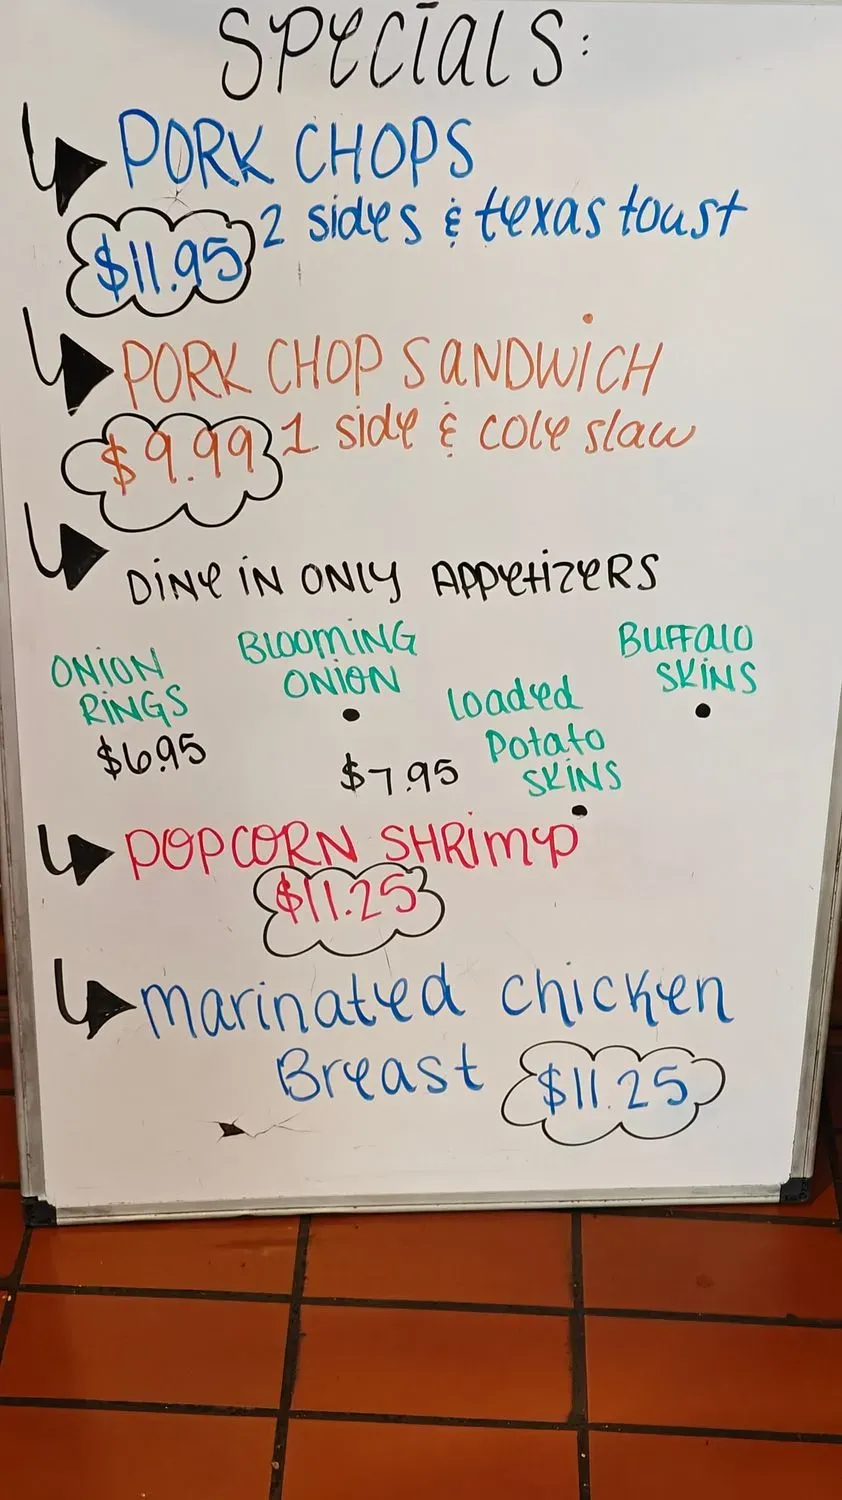 SPECIALS:
PORK CHOPS
$11.95 2 sides & texas toast
PORK CHOP SANDWICH
$9.99 1 side & cole slaw
DINE IN ONLY APPETIZERS
ONION
RINGS
$6.95
BLOOMING
ONION
$7.95
Loaded
Potato
SKINS
BUFFALO
SKINS
POPCORN SHRIMP
$11.25
marinated chicken
Breast $11.25